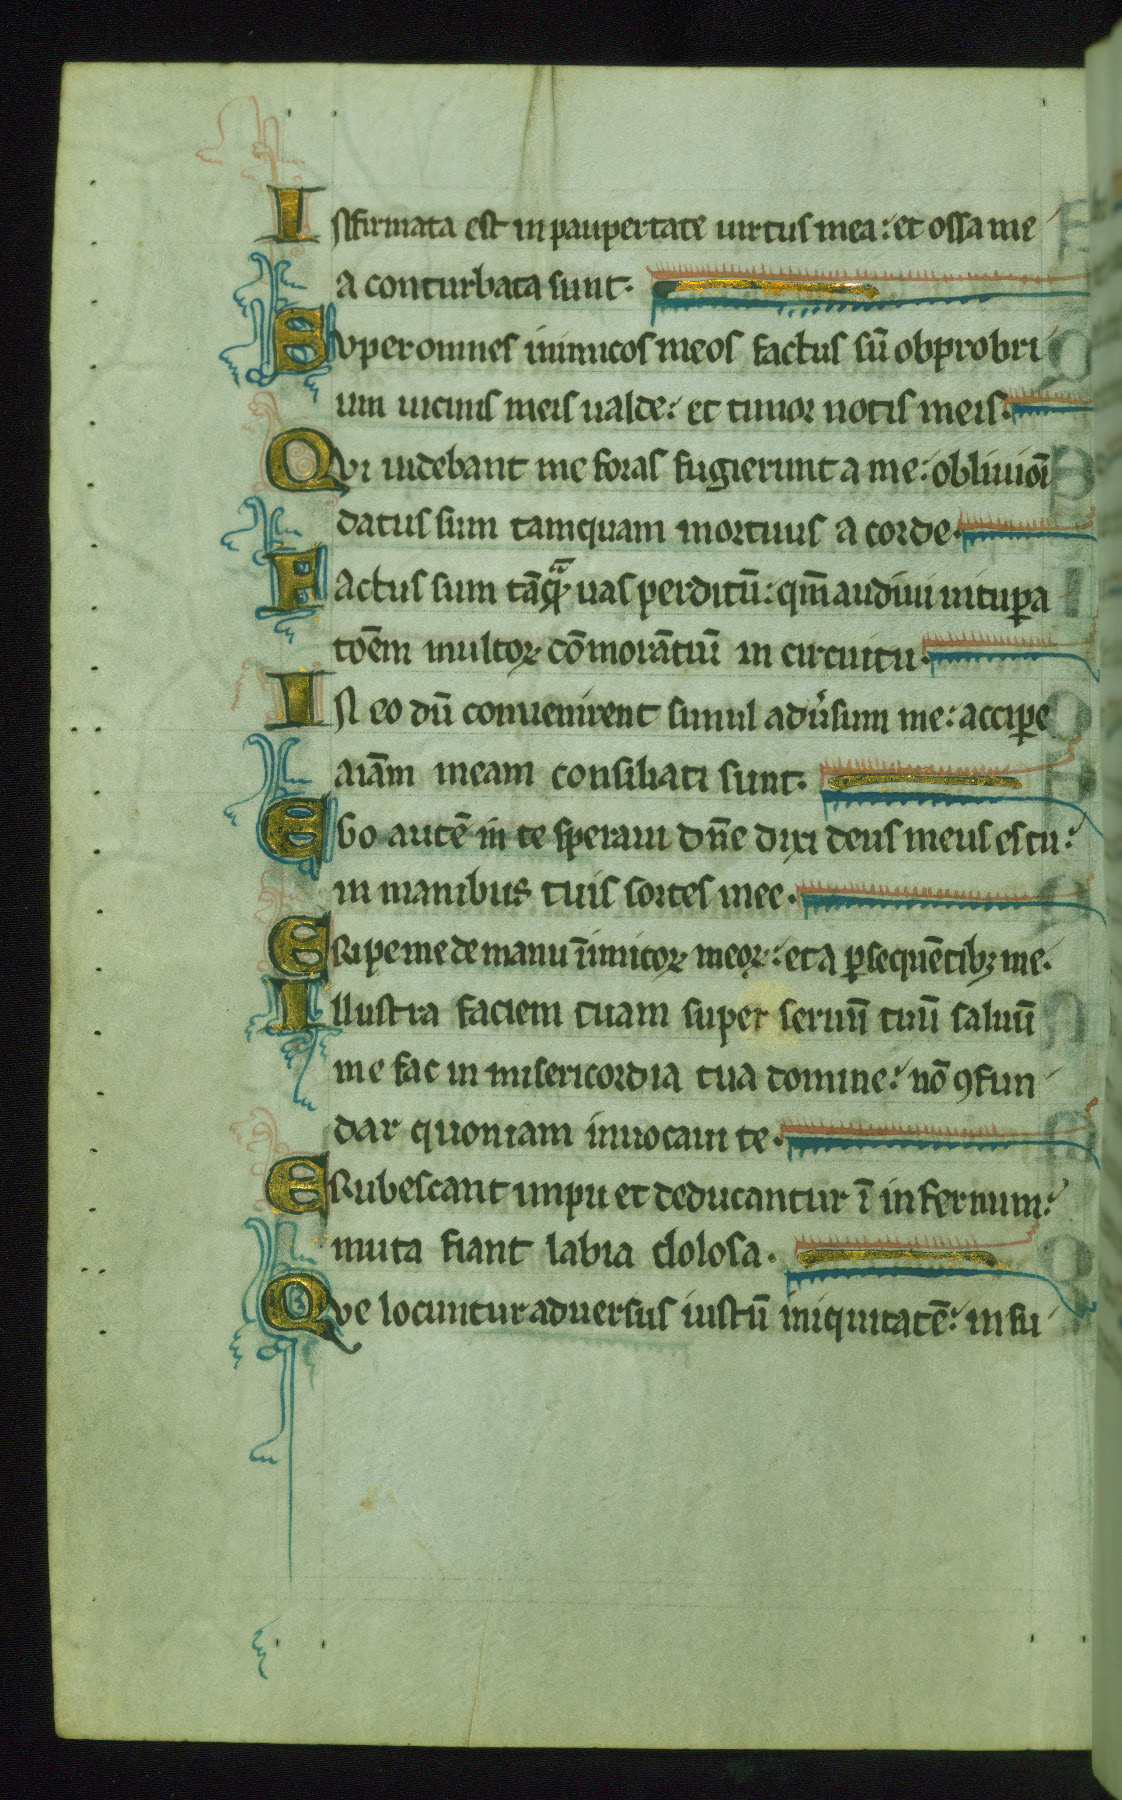 INfirmata est in paupertate uirtus mea: et ossa me
a conturbata sunt.
Super omnes inimicos meos factus sū obprobri
um uicinis meis ualde: et timor notis meis.
Qui uidebant me foras fugierunt a me: obliuiōi
datus sum tamquam mortuus a corde.
Factus sum tāqꝫ uas perditū: qm̄ audiui uitupa
toēm multoꝝ cōmorātiū in circuitu.
IN eo dū conuenirent simul adūsum me: accipe
aiām meam consiliati sunt.
EGo autē in te speraui dn̄e dixi deus meus es tu:
in manibus tuis sortes mee.
ERipe me de manu īimicoꝝ meoꝝ: et a ꝑsequētibꝫ me.
Illustra faciem tuam super seruū tuū saluū
me fac in misericordia tua domine: nō ꝯfun
dar quoniam inuocaui te.
ERubescant impii et deducantur ī infernum:
muta fiant labia dolosa.
Que locuntur aduersus iustū iniquitatē: in su